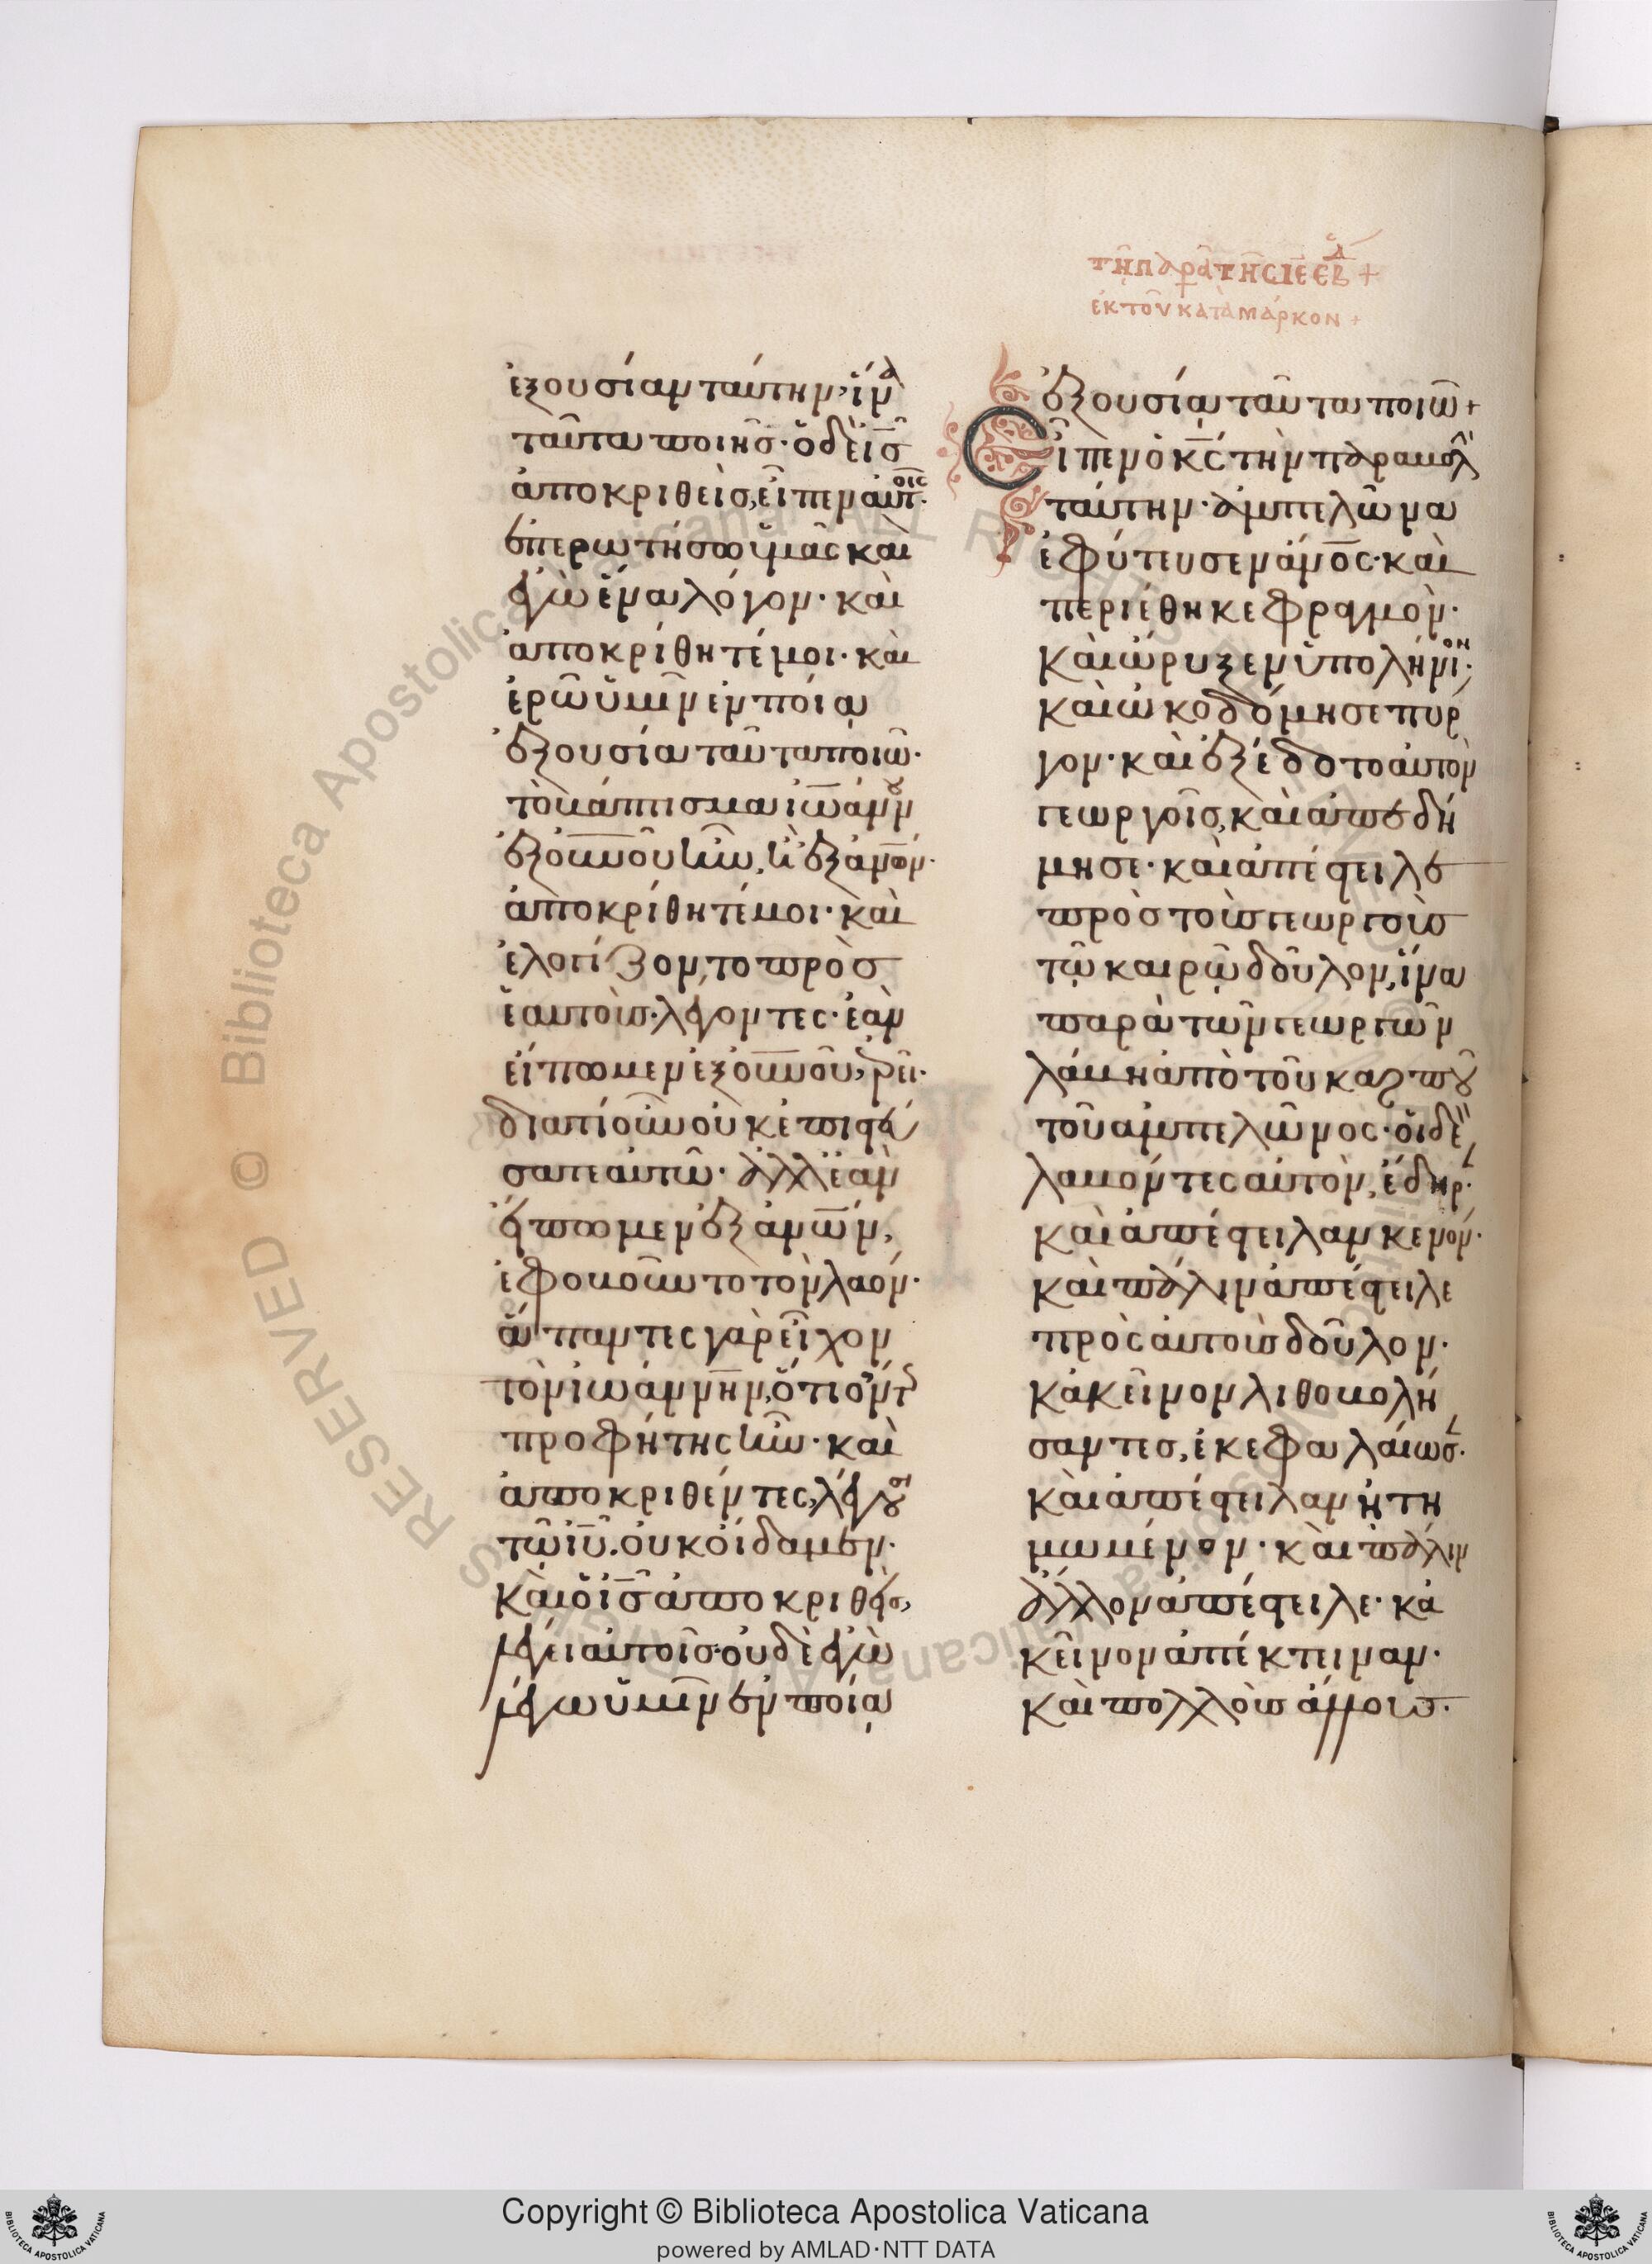 ἐξουσίαν ταύτην, ἵνα
ταῦτα ποιῆς· ὁ δὲ ἰς
ἀποκριθεὶς, εἶπεν αὐτοῖς·
ἐπερωτήσω ὑμᾶς καὶ
ἐγὼ ἕνα λόγον· καὶ
ἀποκρίθητέ μοι· καὶ
ἐρῶ ὑμῖν ἐν ποίᾳ
ἐξουσία ταῦτα ποιῶ·
τὸ βάπτισμα ἰωάννου
ἐξ οὐνοῦ ἦν, ἢ ἐξ ἀνων·
ἀποκρίθητέ μοι· καὶ
ἐλογίζοντο πρὸς
ἑαυτοὺς λέγοντες· ἐὰν
εἴπωμεν ἐξ οὐνοῦ, ἐρεῖ·
διατί οὖν οὐκ ἐπιστεύ
σατε αὐτῶ· ἀλλ' ἐὰν
εἴπωμεν ἐξ ἀνων,
ἐφοβοῦντο τὸν λαόν·
ἅπαντες γὰρ εἶχον
τὸν ἰωάννην, ὅτι ὄντως
προφήτης ἦν· καὶ
ἀποκριθέντες, λέγουσι
τῶ ιυ· οὐκ οἴδαμεν·
καὶ ὁ ις ἀποκριθεὶς,
λέγει αὐτοῖς· οὐδὲ ἐγὼ
λέγω ὑμῖν ἐν ποίᾳ
τῆ παρα τῆς ιε εβδ +
ἐκ τοῦ κατὰ μάρκον +
ἐξουσίᾳ ταῦτα ποιῶ +
Εἶπεν ὁ κς τὴν παραβολὴν
ταύτην· ἀμπελῶνα
ἐφύτευσεν ἄνος· καὶ
περιέθηκε φραγμὸν·
καὶ ὤρυξεν ὑπολήνιον·
καὶ ὠκοδόμησε πύρ
γον· καὶ ἐξέδοτο αὐτὸν
γεωργοῖς, καὶ ἀπεδή
μησε· καὶ ἀπέστειλε
πρὸς τοὺς γεωργοὺς
τῷ καιρῷ δοῦλον, ἵνα
παρὰ τῶν γεωργῶν
λάβη ἀπὸ τοῦ καρποῦ
τοῦ ἀμπελῶνος· οἱ δὲ
λαβόντες αὐτὸν, ἔδηραν·
καὶ ἀπέστειλαν κενόν·
καὶ πάλιν ἀπέστειλε
πρὸς αὐτοὺς δοῦλον·
κἀκεῖνον λιθοβολή
σαντες, ἐκεφαλαίωσαν·
καὶ ἀπέστειλαν ἠτι
μωμένον· καὶ πάλιν
ἄλλον ἀπέστειλε· κἀ
κεῖνον ἀπέκτειναν·
καὶ πολλοὺς ἄλλους·
Copyright © Biblioteca Apostolica Vaticana
powered by AMLAD·NTT DATA